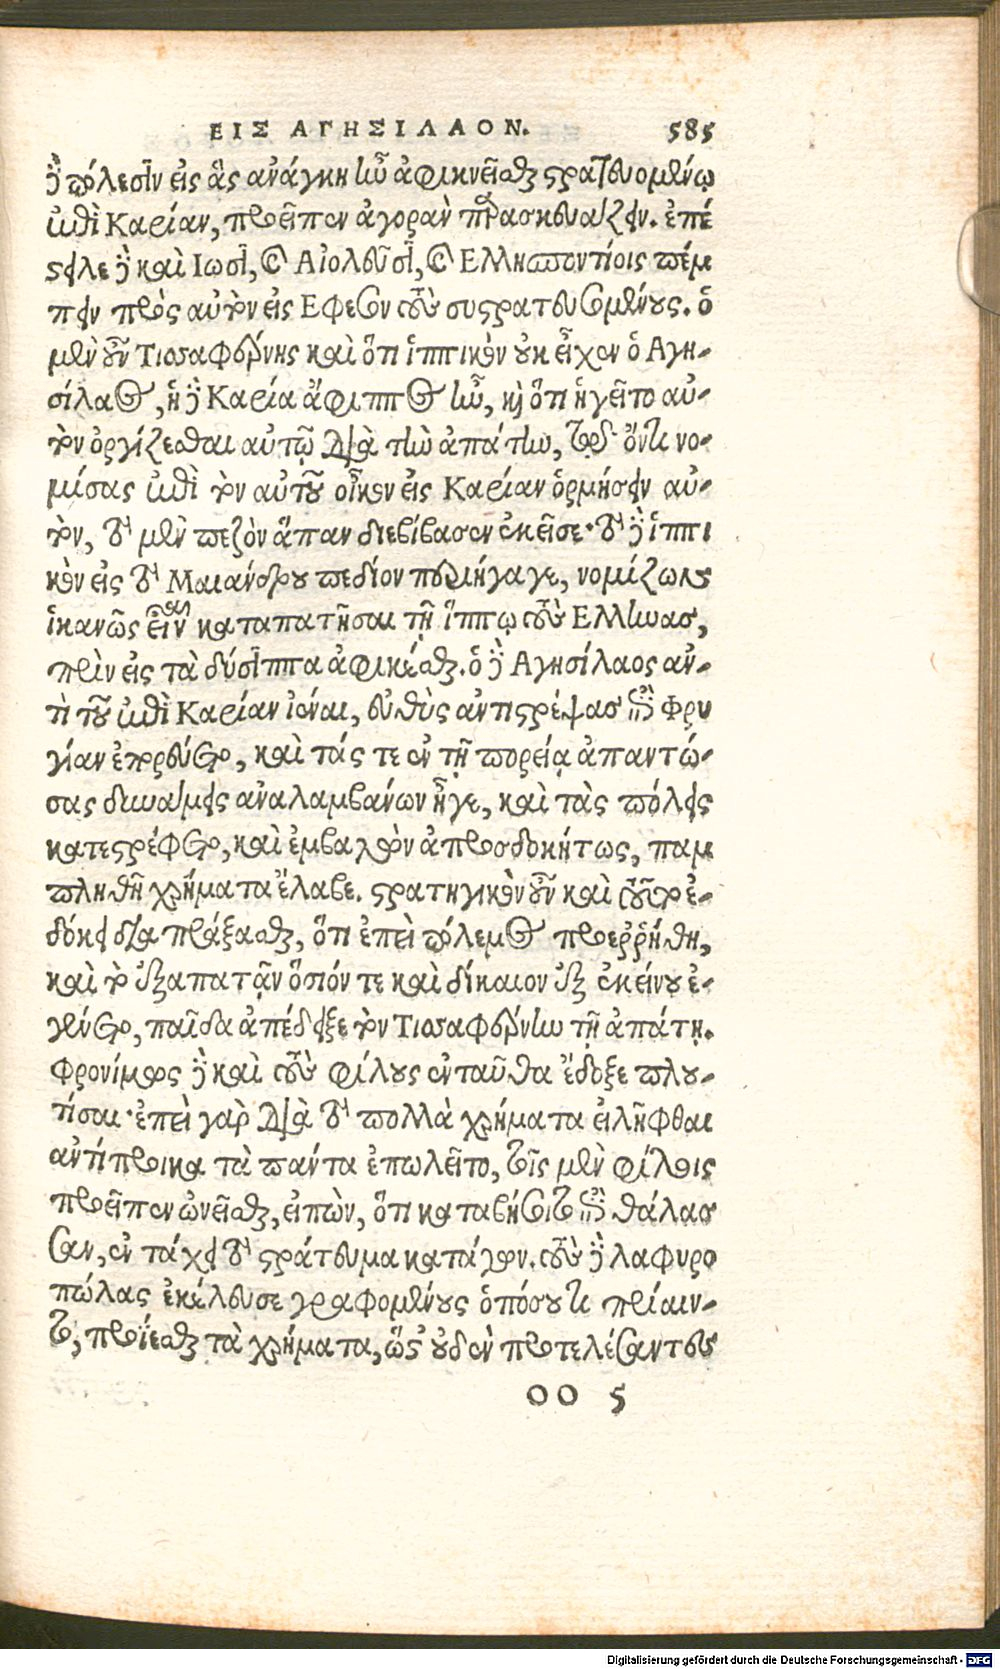 ΕΙΣ ΑΓΗΣΙΛΑΟΝ. 585
δὲ πόλεσιν εἰς ἃς ἀνάγκη ἦν ἀφικνεῖσθαι στρατευομένῳ
ἐπὶ Καρίαν, προεῖπεν ἀγορὰν παρασκευάζειν. ἐπέ
στειλε δὲ καὶ Ιωσι, καὶ Αἰολεῦσι, καὶ Ελλησποντίοις πέμ
πειν πρὸς αὐτὸν εἰς Εφεσον τοὺς συστρατευσομένους. ὁ
μὲν οὖν Τισσαφέρνης καὶ ὅτι ἱππικὸν οὐκ εἶχεν ὁ Αγη-
σίλαος, ἡ δὲ Καρία ἄφιππος ἦν, καὶ ὅτι ἡγεῖτο αὐ-
τὸν ὀργίζεσθαι αὐτῷ διὰ τὴν ἀπάτην, τῷ ὄντι νο-
μίσας ἐπὶ τὸν αὐτοῦ οἶκον εἰς Καρίαν ὁρμήσειν αὐ-
τὸν, τὸ μὲν πεζὸν ἅπαν διεβίβασεν ἐκεῖσε· τὸ δὲ ἱππι
κὸν εἰς τὸ Μαιάνδρου πεδίον περιήγαγε, νομίζων
ἱκανὸς εἶναι καταπατῆσαι τῇ ἵππῳ τοὺς Ελληνας,
πρὶν εἰς τὰ δύσιππα ἀφικέσθαι. ὁ δὲ Αγησίλαος ἀν-
τὶ τοῦ ἐπὶ Καρίαν ἰέναι, εὐθὺς ἀντιστρέψας ἐπὶ Φρυ
γίαν ἐπορεύετο, καὶ τάς τε ἐν τῇ πορείᾳ ἀπαντώ-
σας δυνάμεις ἀναλαμβάνων ἦγε, καὶ τὰς πόλεις
κατεστρέφετο, καὶ ἐμβαλὼν ἀπροσδοκήτως, παμ
πληθῆ χρήματα ἔλαβε. στρατηγικὸν οὖν καὶ τοῦτο ἐ-
δόκει διαπράξασθαι, ὅτι ἐπεὶ πόλεμος προεῤῥήθη,
καὶ τὸ ἐξαπατᾷν ὅσιόν τε καὶ δίκαιον ἐξ ἐκείνου ἐ-
γένετο, παῖδα ἀπέδειξε τὸν Τισσαφέρνην τῇ ἀπάτῃ.
Φρονίμως δὲ καὶ τοὺς φίλους ἐνταῦθα ἔδοξε πλου-
τίσαι· ἐπεὶ γὰρ διὰ τὸ πολλὰ χρήματα εἰλῆφθαι
ἀντίπροικα τὰ πάντα ἐπωλεῖτο, τοῖς μὲν φίλοις
προεῖπεν ὠνεῖσθαι, εἰπὼν, ὅτι καταβήσοιτο ἐπὶ θάλασ
σαν, ἐν τάχει τὸ στράτευμα κατάγων. τοὺς δὲ λαφυρο
πώλας ἐκέλευσε γραφομένους ὁπόσου τι πρίαιν-
το, προΐεσθαι τὰ χρήματα, ὥστ οὐδὲν προτελέσαντες
OO 5
Digitalisierung gefördert durch die Deutsche Forschungsgemeinschaft - DFG